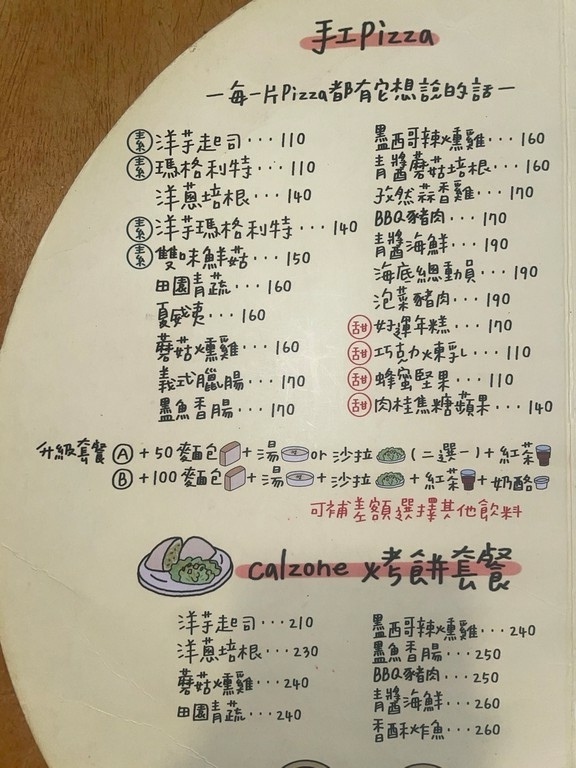 手工Pizza
一每一片Pizza都有它想說的話一
素 洋芋起司･･･110
素 瑪格利特･･･110
洋蔥培根･･･140
素 洋芋瑪格利特･･･140
素 雙味鮮菇･･･150
田園青蔬･･･160
夏威夷･･･160
蘑菇燻雞･･･160
義式臘腸･･･170
墨魚香腸･･･170
墨西哥辣燻雞･･･160
青醬蘑菇培根･･･160
孜然蒜香雞･･･170
BBQ豬肉･･･170
青醬海鮮･･･190
海底總動員･･･190
泡菜豬肉･･･190
甜 好運年糕･･･170
甜 巧克力煉乳･･･110
甜 蜂蜜堅果･･･110
甜 肉桂焦糖蘋果･･･140
升級套餐 A +50 麵包+湯or沙拉(二選一)+紅茶
B +100 麵包+湯+沙拉+紅茶+奶酪
可補差額選擇其他飲料
calzone 烤餅套餐
洋芋起司･･･210
洋蔥培根･･･230
蘑菇燻雞･･･240
田園青蔬･･･240
墨西哥辣燻雞･･･240
墨魚香腸･･･250
BBQ豬肉･･･250
青醬海鮮･･･260
香酥炸魚･･･260